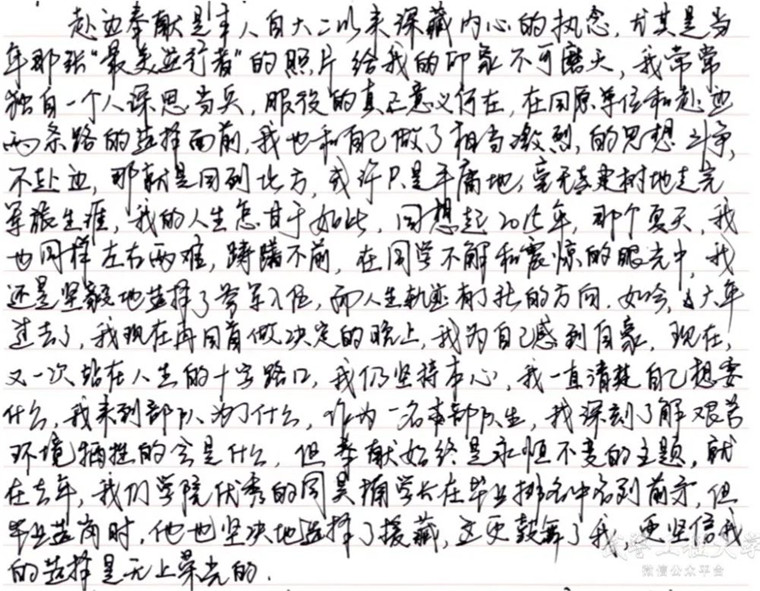 赴边奉献是本人自大二以来深藏内心的执念，尤其是当
年那张“最美逆行者”的照片给我的印象不可磨灭，我常常
独自一个人深思当兵，服役的真正意义何在，在回原单位和赴边
两条路的选择面前，我也和自己做了相当激烈，的思想斗争，
不赴边，那就是回到北方，或许只是平庸地，毫无建树地走完
军旅生涯，我的人生怎甘于如此，回想起2015年，那个夏天，我
也同样左右两难，踌躇不前，在同学不解和震惊的眼光中，我
还是坚毅地选择了参军入伍，而人生轨迹有了我的方向．如今，六年
过去了，我现在再回首做决定的晚上，我为自己感到自豪，现在，
又一次站在人生的十字路口，我仍坚持本心，我一直清楚自己想要
什么，我来到部队为了什么，作为一名本部队生，我深刻了解艰苦
环境牺牲的会是什么，但奉献始终是永恒不变的主题，就
在去年，我们学院优秀的同昊楠学长在毕业排名中名列前茅，但
毕业选岗时，他也坚决地选择了援藏，这更鼓舞了我，更坚信我
的选择是无上荣光的．
武警工程大学
微信公众平台